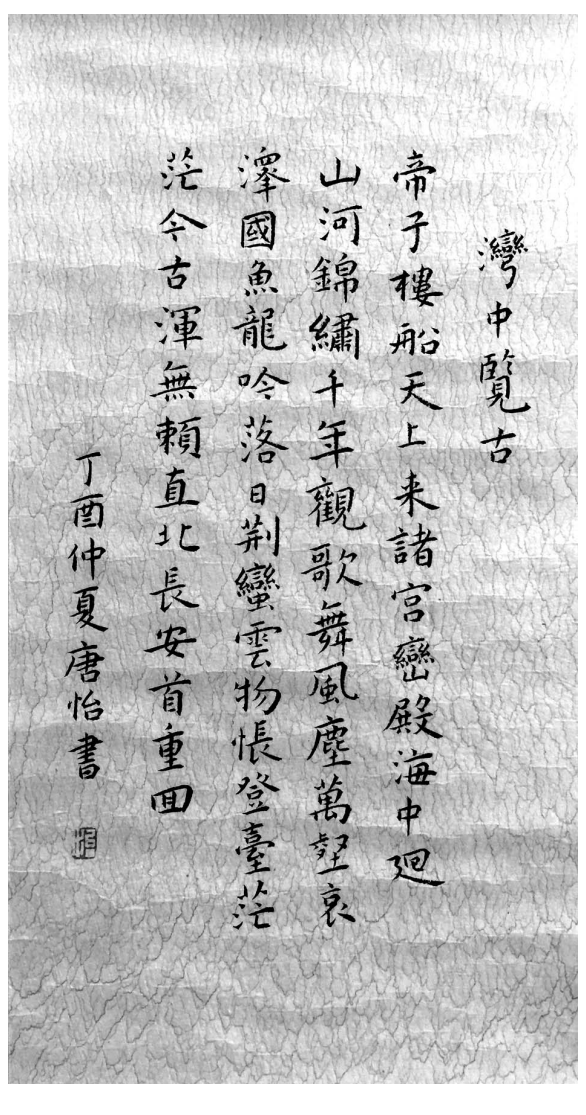 灣中覽古
帝子樓船天上来諸宮巒殿海中廻
山河錦繡千年觀歌舞風塵萬壑哀
澤國魚龍吟落日荆蠻雲物悵登臺茫
茫今古渾無賴直北長安首重回
丁酉仲夏唐怡書